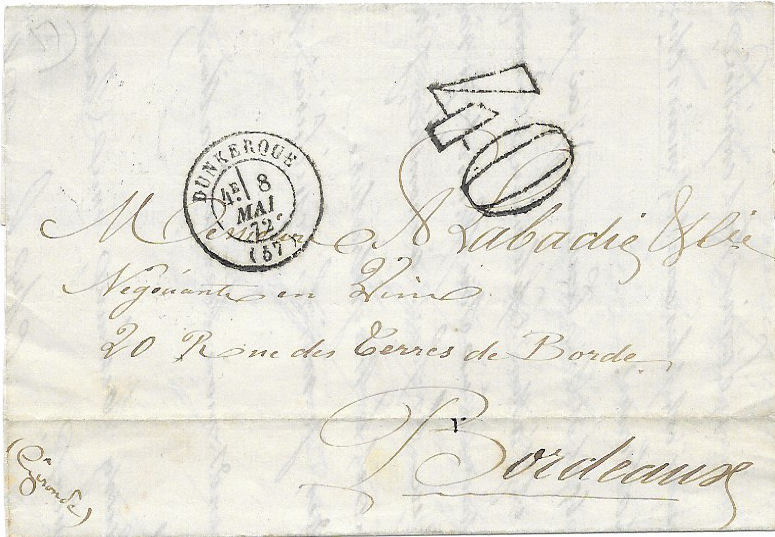 40
DUNKERQUE
4E 8
MAI
72
(57)
Messieurs A Labadie & Cie
Négociants en Vins
20 Rue des Terres de Borde
Bordeaux
(Gironde)